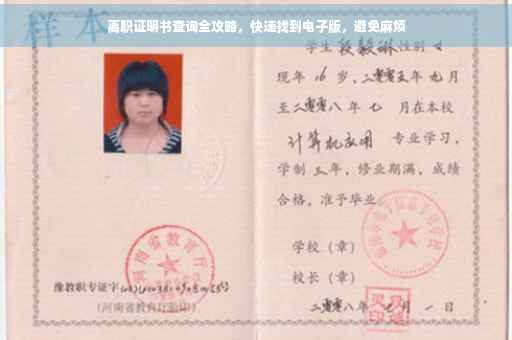 离职证明书查询全攻略，快速找到电子版，避免麻烦
样本
学生 段毅琳 性别 女
现年 16 岁，二零零五年 九月
至二零零八年 七 月在本校
计算机应用 专业学习，
学制 三 年，修业期满，成绩
合格，准予毕业
学校（章）
校长（章）
二零零八年 七 月 一 日
河南省教育厅
豫教职专证字
（河南省教育厅验印）